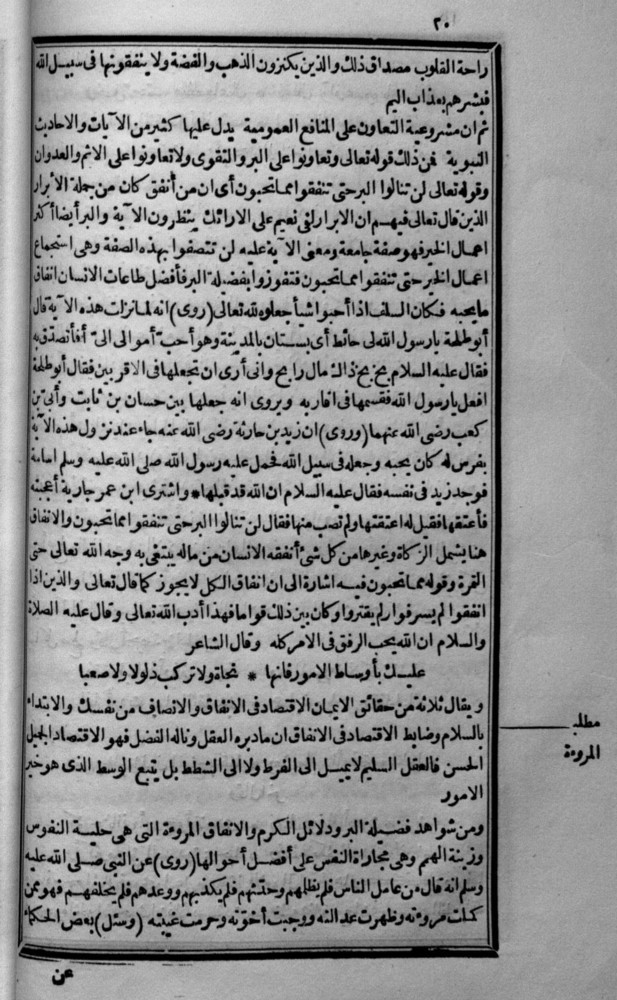 ٢٠
راحة القلوب مصداق ذلك والذين يكنزون الذهب والفضة ولا ينفقونها فى سبيل الله
فبشرهم بعذاب اليم
ثم ان مشروعية التعاون على المنافع العمومية يدل عليها كثير من الآيات والاحاديث
النبوية فمن ذلك قوله تعالى وتعاونوا على البر والتقوى ولا تعاونوا على الاثم والعدوان
وقوله تعالى لن تنالوا البر حتى تنفقوا مما تحبون أى ان من أنفق كان من جملة الأبرار
الذين قال تعالى فيهم ان الابرار لفى نعيم على الارائك ينظرون الآية والبر أيضا أكثر
اعمال الخير فهو صفة جامعة ومعنى الآية عليه لن تتصفوا بهذه الصفة وهى استجماع
اعمال الخير حتى تنفقوا مما تحبون فتفوزوا بفضيلة البر فأفضل طاعات الانسان انفاق
ما يحبه فكان السلف اذا أحبوا شيأ جعلوه لله تعالى (روى) انه لما نزلت هذه الآية قال
أبو طلحة يارسول الله لى حائط أى بستان بالمدينة وهو أحب أموالى الىّ أفأتصدق به
فقال عليه السلام بخ بخ ذاك مال رابح وانى أرى ان تجعلها فى الاقربين فقال أبو طلحة
افعل يارسول الله فقسمها فى أقاربه ويروى انه جعلها بين حسان بن ثابت وأبى بن
كعب رضى الله عنهما (وروى) ان زيد بن حارثة رضى الله عنه جاء عند نزول هذه الآية
بفرس له كان يحبه وجعله فى سبيل الله فحمل عليه رسول الله صلى الله عليه وسلم اسامة
فوجد زيد فى نفسه فقال عليه السلام ان الله قد قبلها * واشترى ابن عمر جارية أعجبته
فأعتقها فقيل له اعتقتها ولم تصب منها فقال لن تنالوا البر حتى تنفقوا مما تحبون والانفاق
هنا يشمل الزكاة وغيرها من كل شئ أنفقه الانسان من ماله يبتغى به وجه الله تعالى حتى
التمرة وقوله مما تحبون فيه اشارة الى ان انفاق الكل لا يجوز كما قال تعالى والذين اذا
انفقوا لم يسرفوا ولم يقتروا وكان بين ذلك قواما فهذا أدب الله تعالى وقال عليه الصلاة
والسلام ان الله يحب الرفق فى الامر كله وقال الشاعر
عليك بأوساط الامور فانها * نجاة ولا تركب ذلولا ولا صعبا
ويقال ثلاثة من حقائق الايمان الاقتصاد فى الانفاق والانصاف من نفسك والابتداء
بالسلام وضابط الاقتصاد فى الانفاق ان ما دبره العقل وناله الفضل فهو الاقتصاد الجميل
الحسن فالعقل السليم لا يميل الى الفرط ولا الى الشطط بل يتبع الوسط الذى هو خير
الامور
ومن شواهد فضيلة البر ودلائل الكرم والانفاق المروءة التى هى حلية النفوس
وزينة الهمم وهى مجاراة النفس على أفضل أحوالها (روى) عن النبى صلى الله عليه
وسلم انه قال من عامل الناس فلم يظلمهم وحدثهم فلم يكذبهم ووعدهم فلم يخلفهم فهو ممن
كملت مروءته وظهرت عدالته ووجبت أخوته وحرمت غيبته (وسئل) بعض الحكماء
عن
مطلب
المروءة